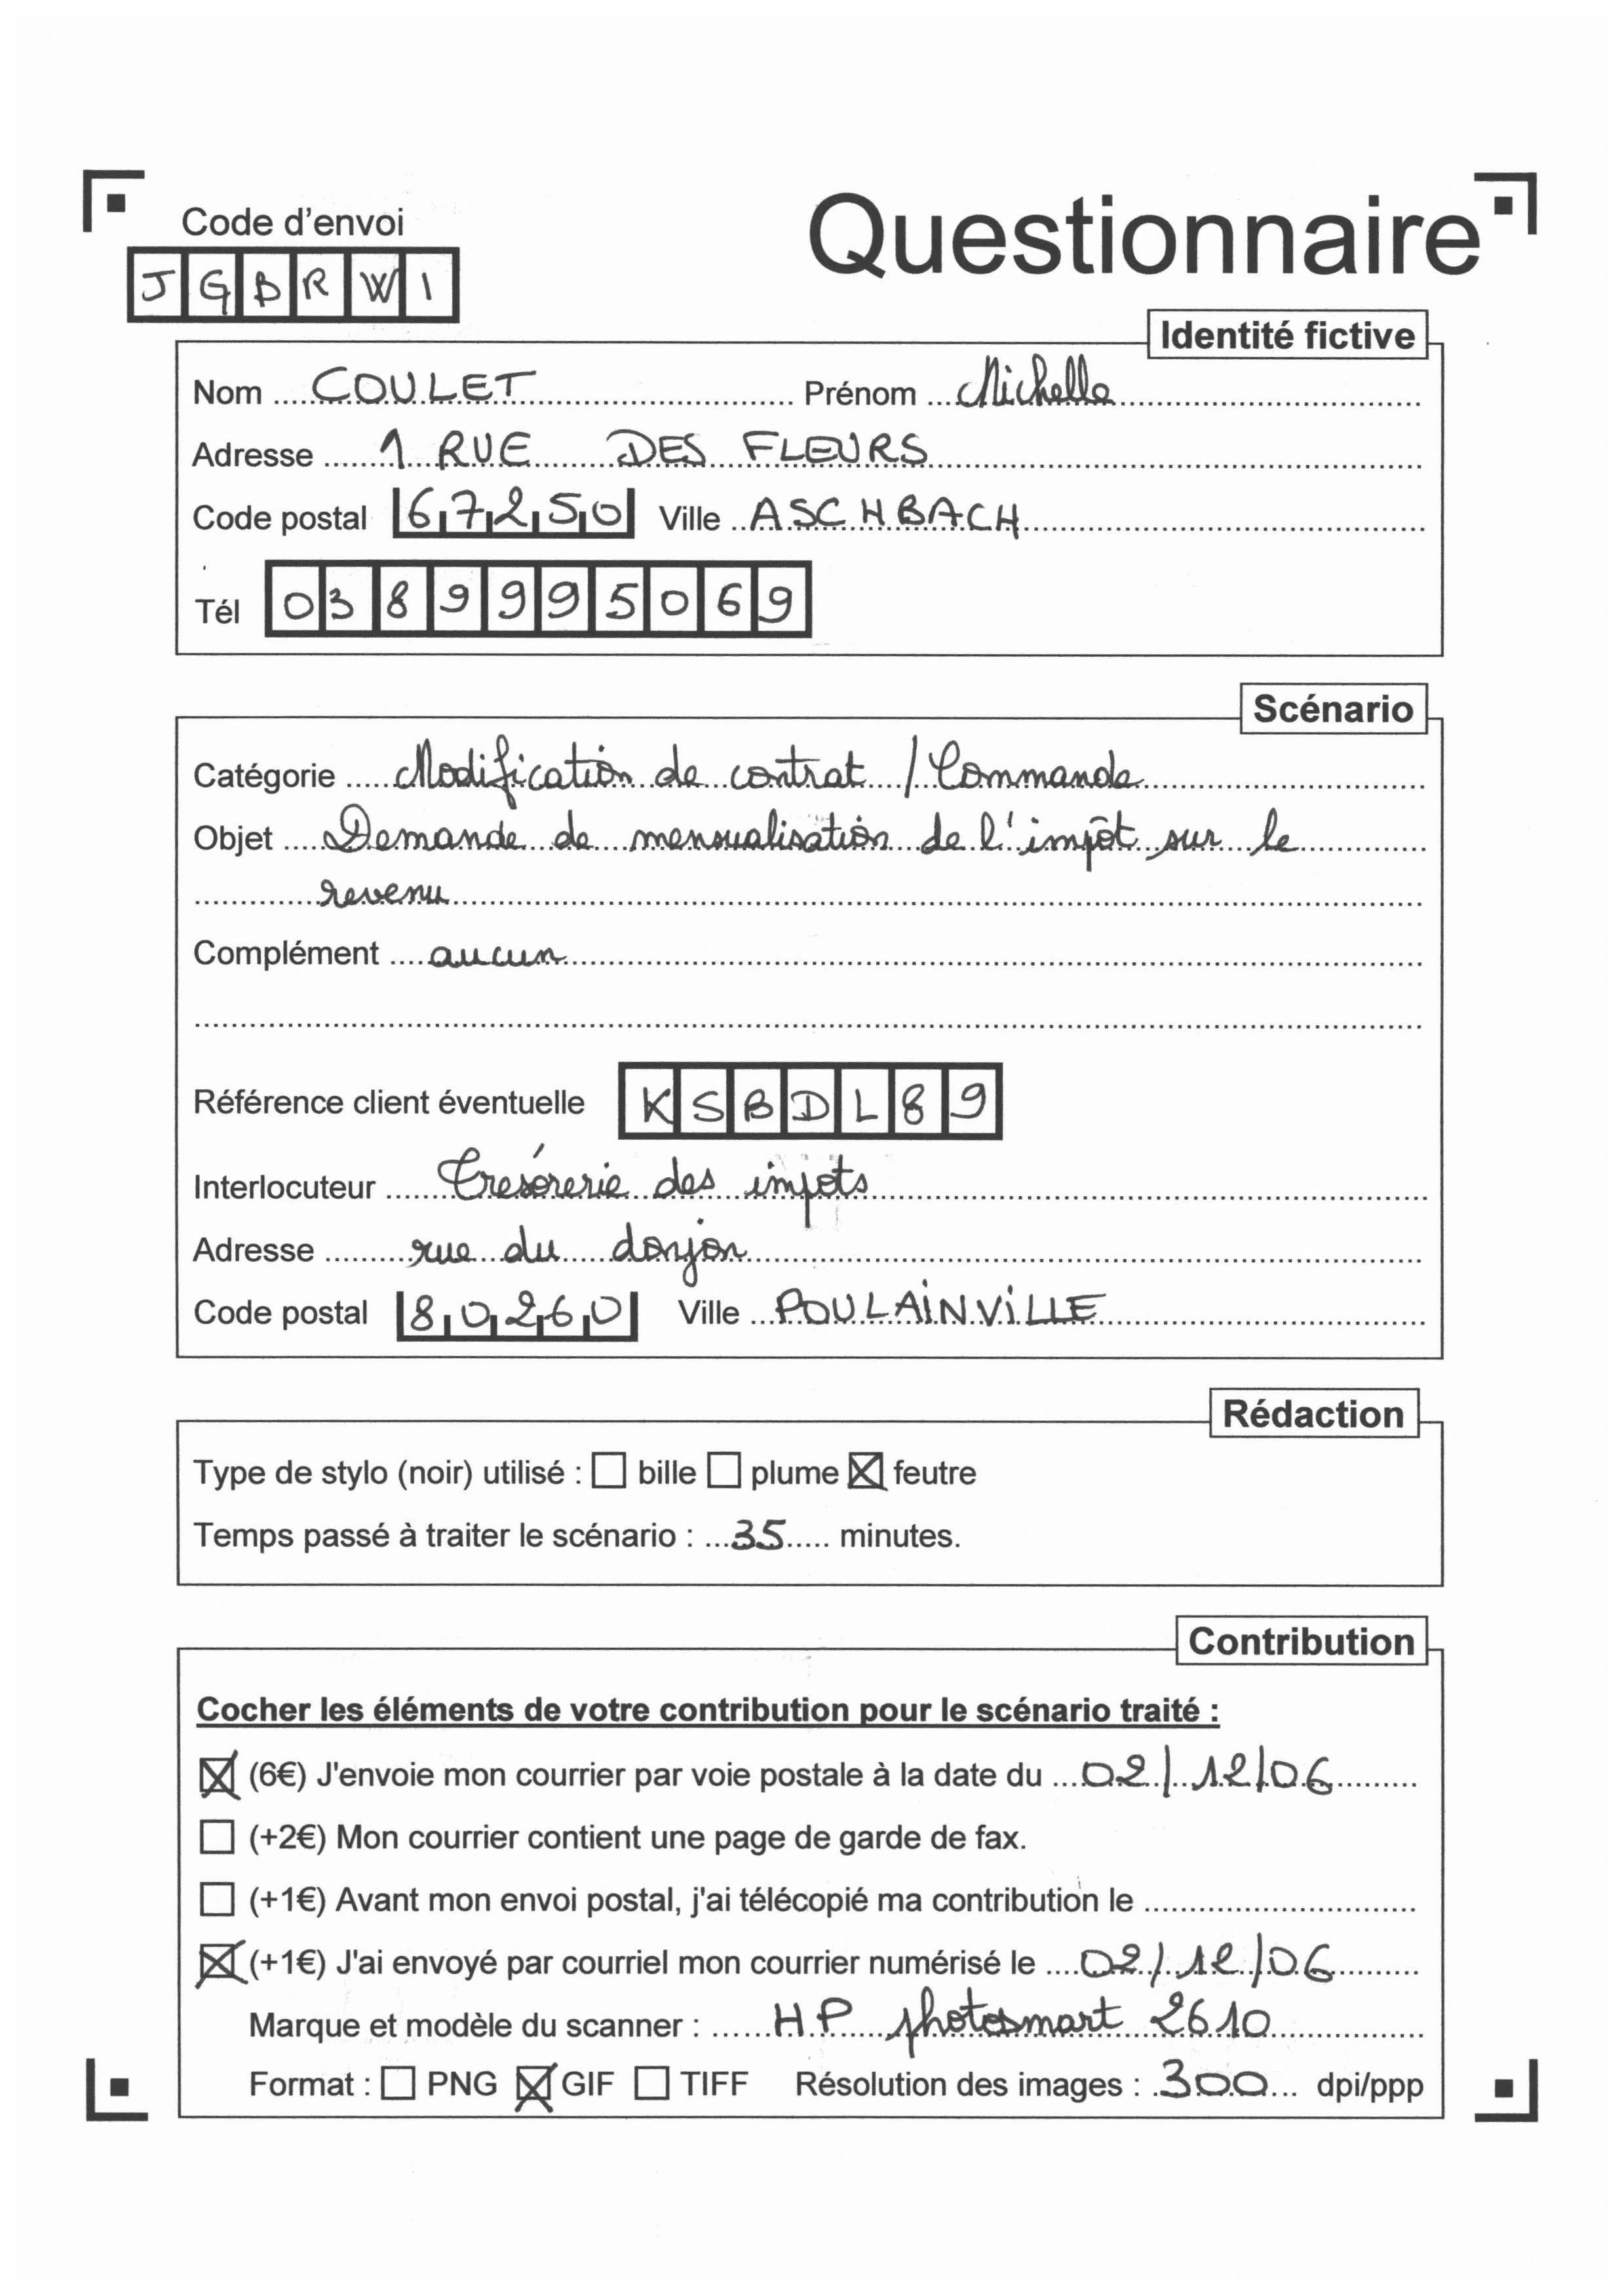 Code d'envoi
Questionnaire
J G B R W 1
Identité fictive
Nom COULET Prénom Michelle
Adresse 1 RUE DES FLEURS
Code postal 67250 Ville ASCHBACH
Tél 0389995069
Scénario
Catégorie Modification de contrat / Commande
Objet Demande de mensualisation de l'impôt sur le
revenu
Complément aucun
Référence client éventuelle KSBDL89
Interlocuteur Trésorerie des impots
Adresse rue du donjon
Code postal 80260 Ville POULAINVILLE
Rédaction
Type de stylo (noir) utilisé : ☐ bille ☐ plume ☒ feutre
Temps passé à traiter le scénario : 35 minutes.
Contribution
Cocher les éléments de votre contribution pour le scénario traité :
☒ (6€) J'envoie mon courrier par voie postale à la date du 02/12/06
☐ (+2€) Mon courrier contient une page de garde de fax.
☐ (+1€) Avant mon envoi postal, j'ai télécopié ma contribution le
☒ (+1€) J'ai envoyé par courriel mon courrier numérisé le 02/12/06
Marque et modèle du scanner : HP photosmart 2610
Format : ☐ PNG ☒ GIF ☐ TIFF Résolution des images : 300 dpi/ppp